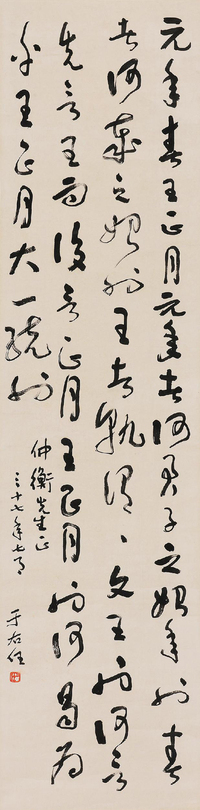 元年春王正月元年者何君子之始年也春
者何歲之始也王者孰謂、文王也何言
先言王而後言正月王正月也何曷為
乎王正月大一統也
仲衡先生正
三十七年七月
于右任